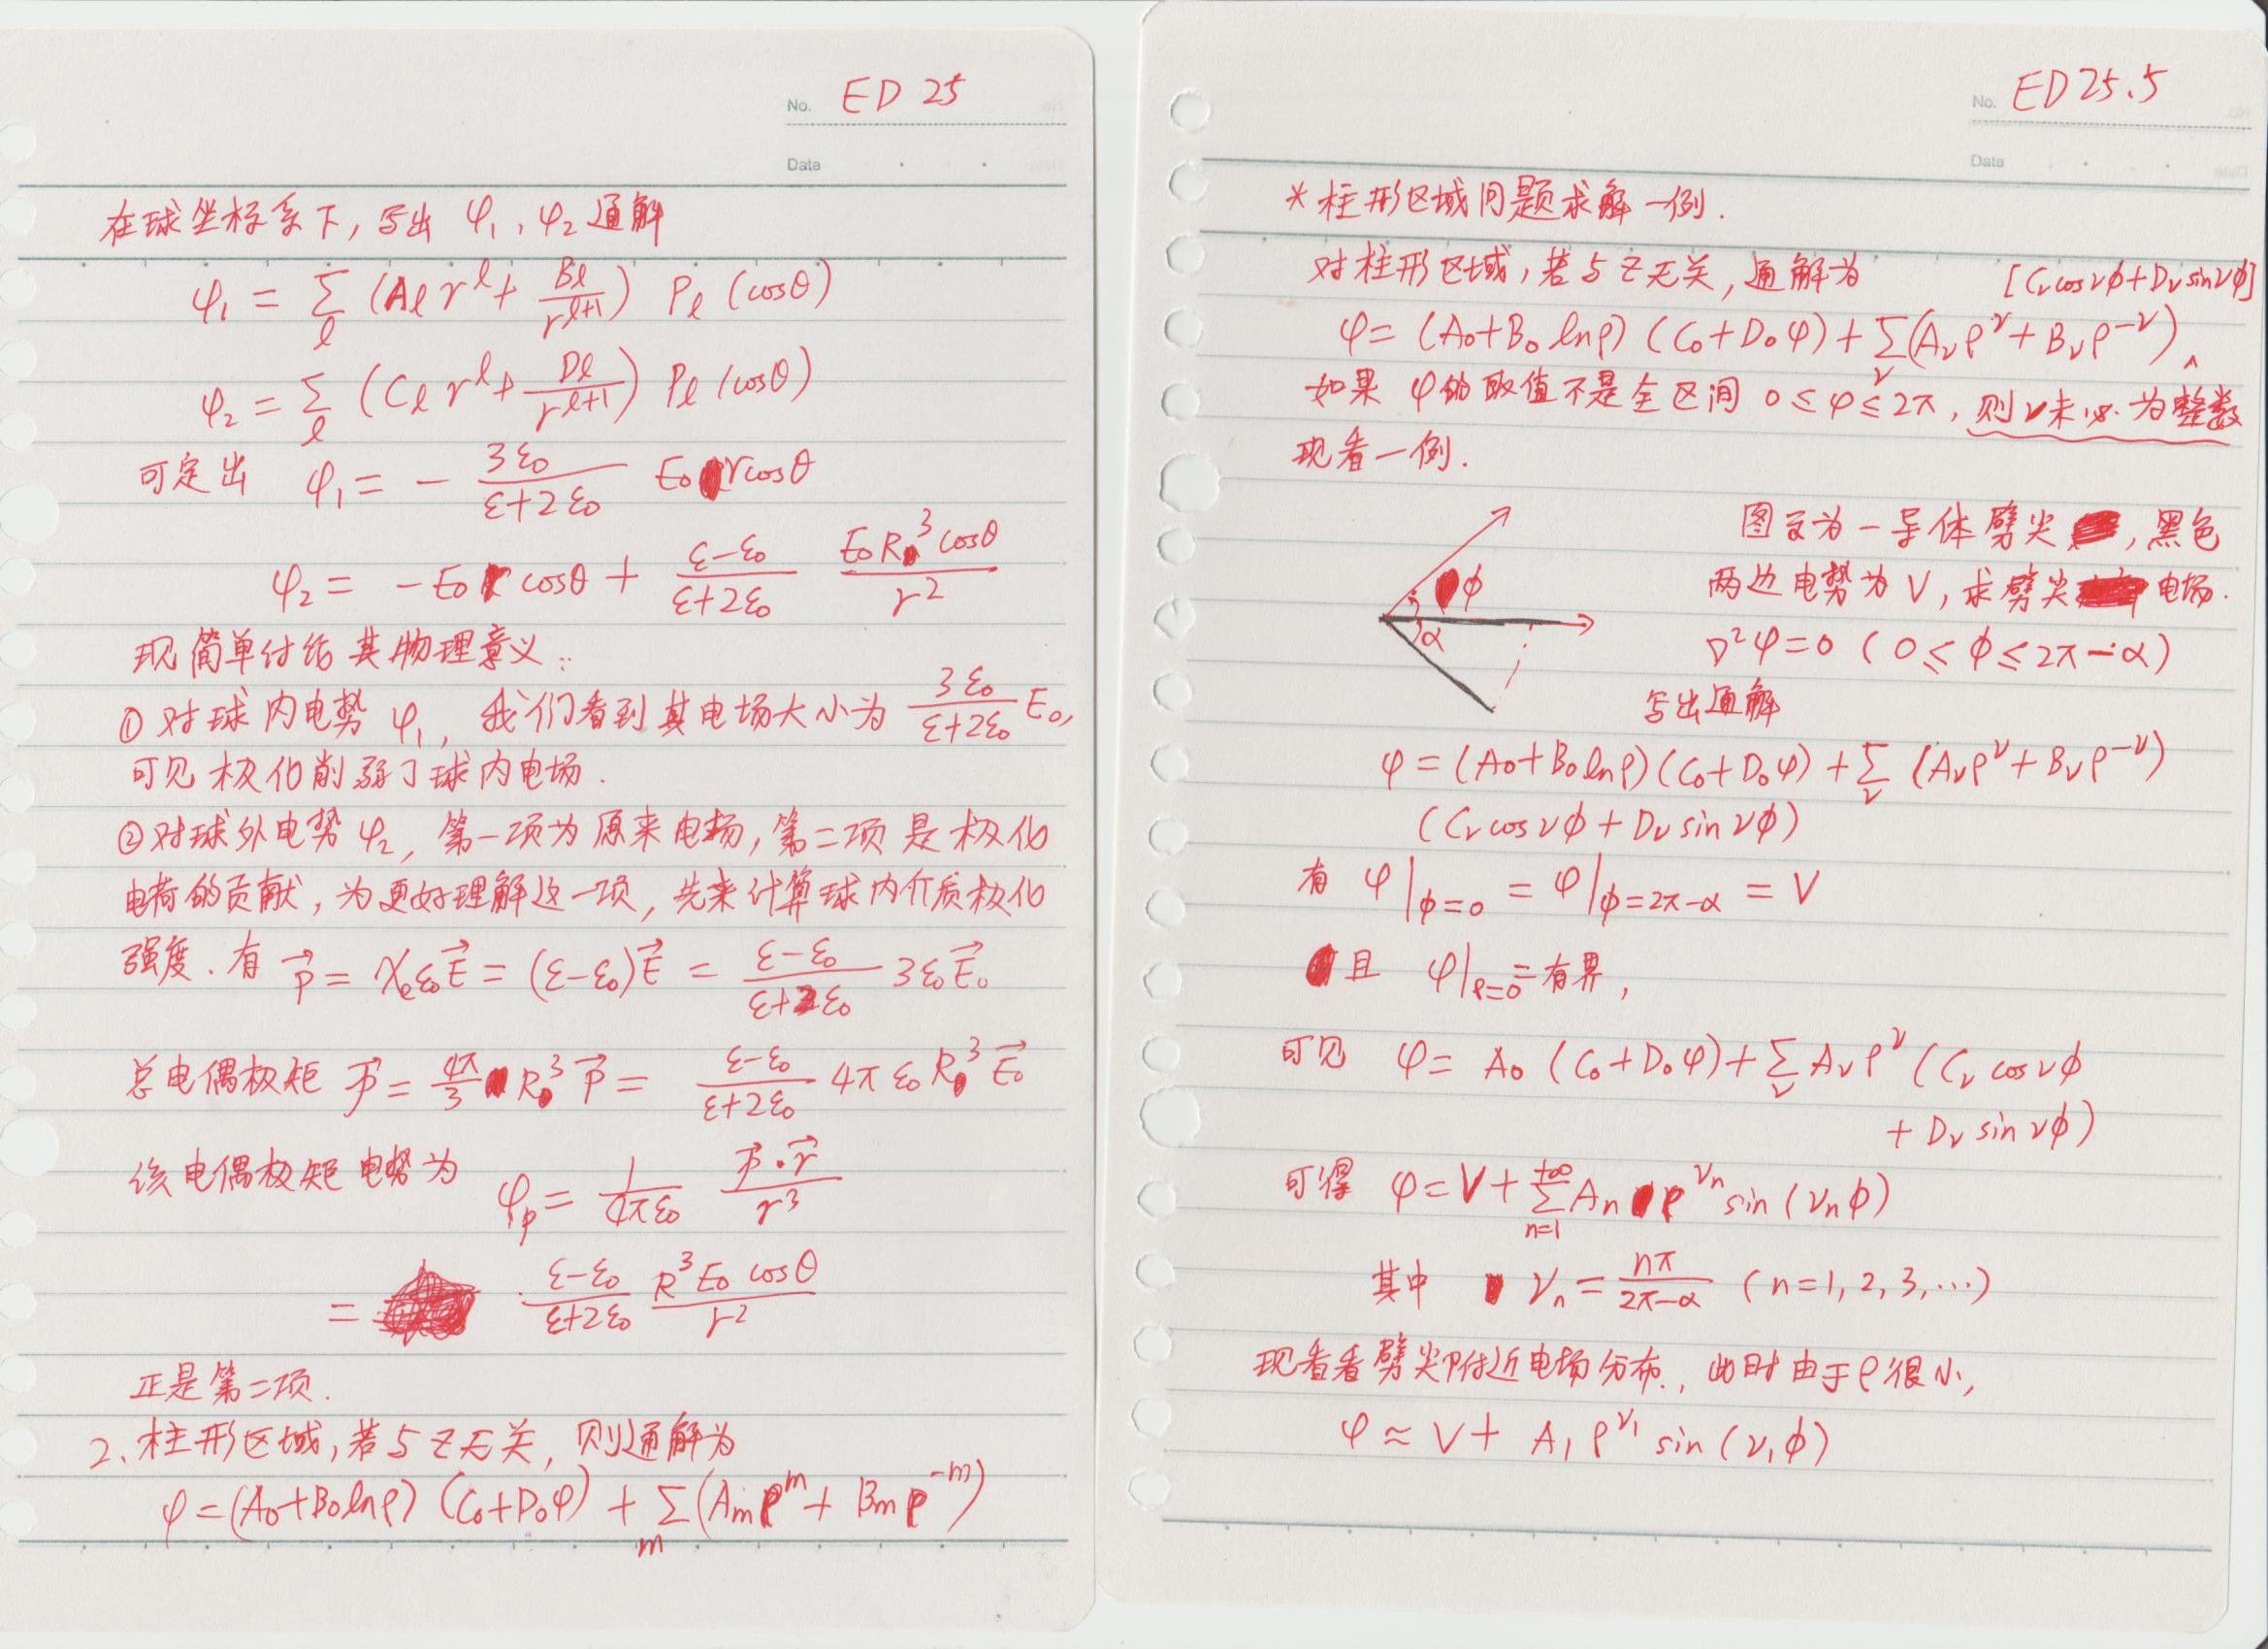 No. ED 25
Date
在球坐标系下,写出 φ₁,φ₂ 通解
φ₁ = Σ_l (A_l r^l + B_l/r^{l+1}) P_l (cosθ)
φ₂ = Σ_l (C_l r^l + D_l/r^{l+1}) P_l (cosθ)
可定出 φ₁ = - 3ε₀/(ε+2ε₀) E₀ r cosθ
φ₂ = -E₀ r cosθ + (ε-ε₀)/(ε+2ε₀) E₀R³cosθ/r²
现简单讨论其物理意义:
① 对球内电势 φ₁, 我们看到其电场大小为 3ε₀/(ε+2ε₀) E₀,
可见极化削弱了球内电场.
② 对球外电势 φ₂, 第一项为原来电场, 第二项是极化
电荷的贡献, 为更好理解这一项, 先来计算球内介质极化
强度. 有 P⃗ = χₑε₀E⃗ = (ε-ε₀)E⃗ = (ε-ε₀)/(ε+2ε₀) 3ε₀E⃗₀
总电偶极矩 p⃗ = 4π/3 R³ P⃗ = (ε-ε₀)/(ε+2ε₀) 4πε₀R³E⃗₀
该电偶极矩电势为 φ_p = 1/(4πε₀) p⃗·r⃗/r³
= (ε-ε₀)/(ε+2ε₀) R³E₀cosθ/r²
正是第二项.
2. 柱形区域, 若与z无关, 则通解为
φ = (A₀+B₀lnρ) (C₀+D₀φ) + Σ_m (A_m ρ^m + B_m ρ^{-m})
No. ED 25.5
Date
* 柱形区域问题求解一例.
对柱形区域, 若与z无关, 通解为 [C_ν cosνϕ + D_ν sinνϕ]
φ = (A₀+B₀ lnρ) (C₀+D₀φ) + Σ_ν (A_ν ρ^ν + B_ν ρ^{-ν}) ^
如果 φ的取值不是全区间 0≤φ≤2π, 则ν未必为整数
现看一例.
图文为一导体劈尖, 黑色
两边电势为V, 求劈尖电场.
ϕ
α
∇²φ=0 (0≤ϕ≤2π-α)
写出通解
φ = (A₀+B₀lnρ)(C₀+D₀φ) + Σ_ν (A_ν ρ^ν + B_ν ρ^{-ν})
(C_ν cosνϕ + D_ν sinνϕ)
有 φ|_{ϕ=0} = φ|_{ϕ=2π-α} = V
且 φ|_{ρ=0} = 有界,
可见 φ = A₀ (C₀+D₀φ) + Σ_ν A_ν ρ^ν (C_ν cosνϕ
+ D_ν sinνϕ)
可得 φ = V + Σ_{n=1}^{+∞} A_n ρ^{ν_n} sin(ν_nϕ)
其中 ν_n = nπ/(2π-α) (n=1,2,3,…)
现看看劈尖附近电场分布, 此时由于ρ很小,
φ ≈ V + A₁ρ^{ν₁} sin(ν₁ϕ)